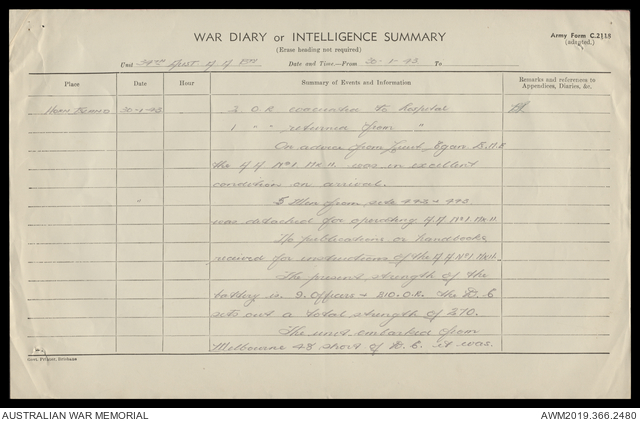 WAR DIARY or INTELLIGENCE SUMMARY
Army Form C.2118
(Erase heading not required)
(adapted.)
Unit 34th AUST Date and Time—From 30-1-43 To
Place Date Hour Summary of Events and Information Remarks and references to Appendices, Diaries, &c.
HORN ISLAND 30-1-43 2 O.R. evacuated to hospital
1 " " returned from "
On advice from Lieut. Egan
the was in excellent
condition on arrival.
" 5 Men from site 442 & 443
was detached for operating
No publications or handbooks
received for instructions of the
The present strength of the
battery is 9. Officers & 210. O.R. The W.E
sets out a total strength of 270.
The unit embarked from
Melbourne 48 short of W.E. it was
Govt. Printer, Brisbane
AUSTRALIAN WAR MEMORIAL
AWM2019.366.2480